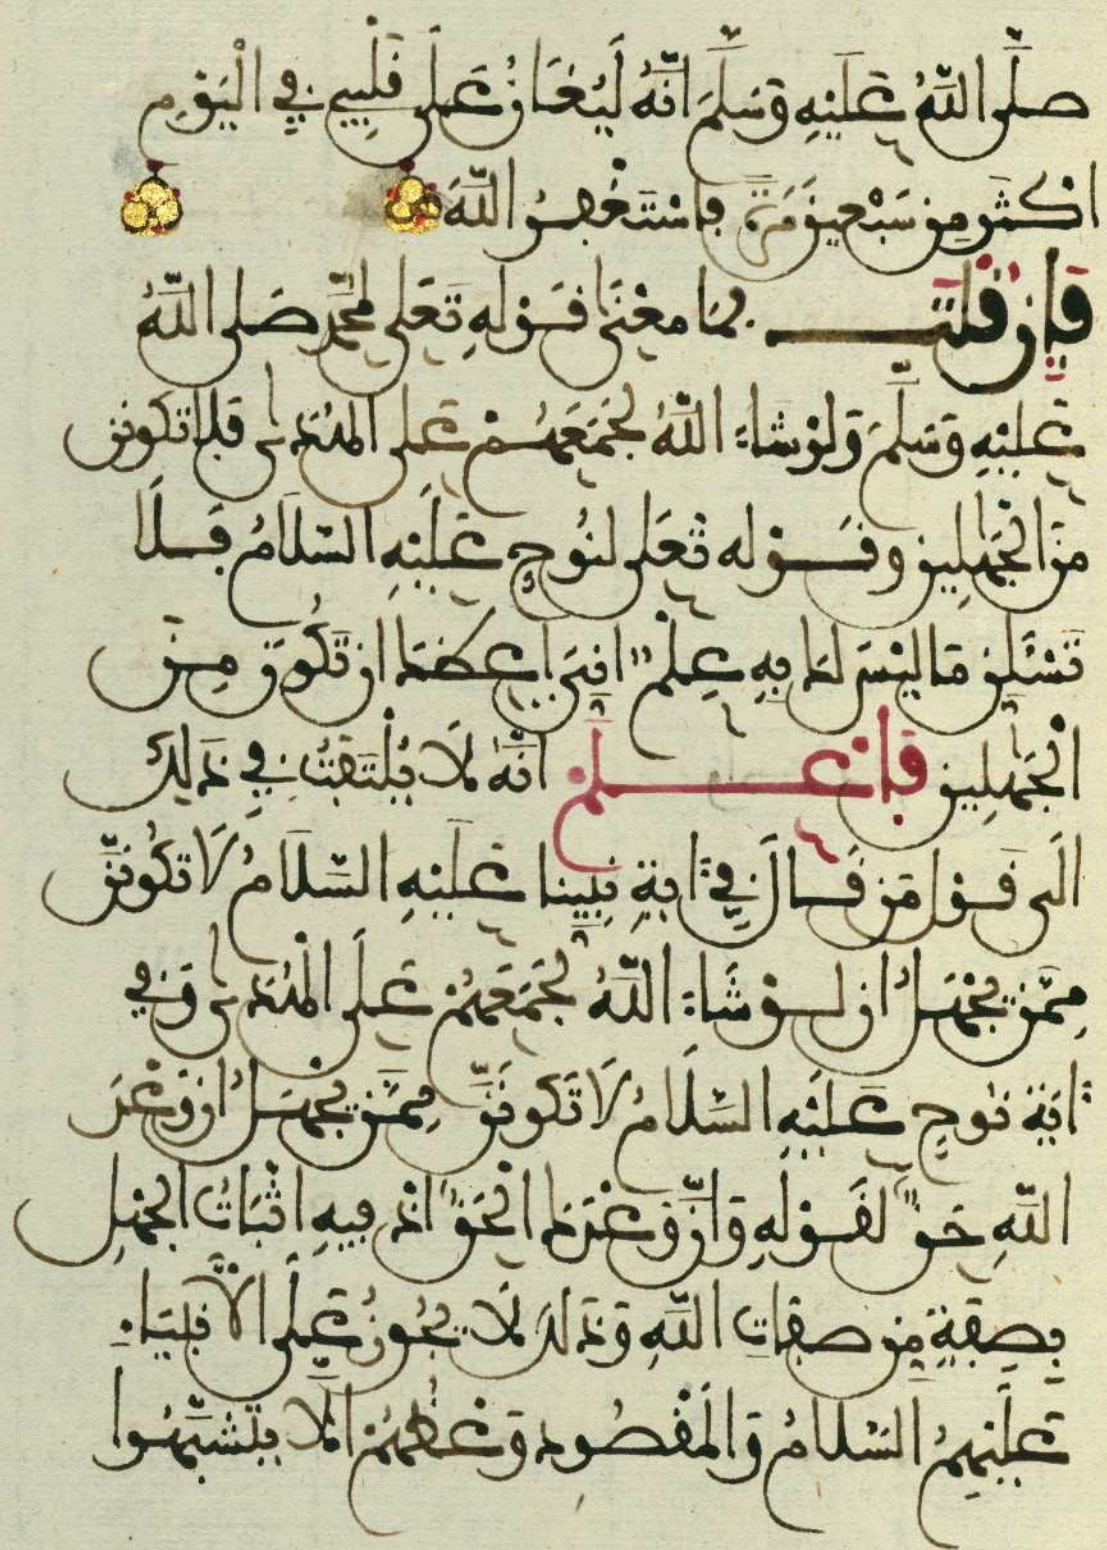 صلى اللهُ عَلَيْهِ وَسَلَّمَ انَّهُ لَيُغَانُ عَلَى قَلْبِي فِي الْيَوْمِ
اكْثَرَ مِن سَبْعِينَ مَرَّةً فاسْتَغْفِرُ اللَّهَ
فَإِن قلتَ فمَا معْنَى قَوْلِهِ تَعَلى لمحَمَّدٍ صَلى اللهُ
عَلَيْهِ وَسَلَّمَ وَلَوْ شَاءَ اللهُ لجَمَعَهُمْ عَلَى الهُدَىٰ فَلا تَكُونَنَّ
مِنَ الْجَٰهِلِينَ وقَوْله تَعَلى لنُوحٍ عَلَيْهِ السّلَامُ فَلَا
تَسْـَٔلَنِ مَا لَيْسَ لَكَ بِهِ عِلْمٌ انِّيَ أَعِظُكَ ان تَكُونَ مِنَ
الْجَٰهِلِينَ فَاعْلَمْ انَّهُ لَا يُلْتَفَتُ فِي ذَلِكَ
الَى قَوْلِ مَن قَالَ فِي ءَايَةِ نَبِيِّنَا عَلَيْهِ السَّلَامُ لَا تَكُونَنَّ
مِمَّن يَجْهَلُ ان لوْ شَاءَ اللهُ لَجَمَعَهُمْ عَلَى الْهُدَىٰ وَفي
ءَايَةِ نوحٍ عَلَيْهِ السَّلَامُ لَا تَكُونَنَّ مِمَّن يَجْهَلُ ان وَعْدَ
اللَّهِ حَقٌّ لقَوْلِهِ وَانَّ وَعْدَكَ الْحَقُّ اذ فِيهِ اثْبَاتُ الجَهْلِ
بِصِفَةٍ مِن صِفَاتِ اللَّهِ وَذَلكَ لَا يَجُوزُ عَلَى الأنْبِيَاءِ
عَلَيْهِمُ السَّلامُ وَالمَقْصُود وَعْظُهُمْ الَّا يَتَشَبَّهُوا